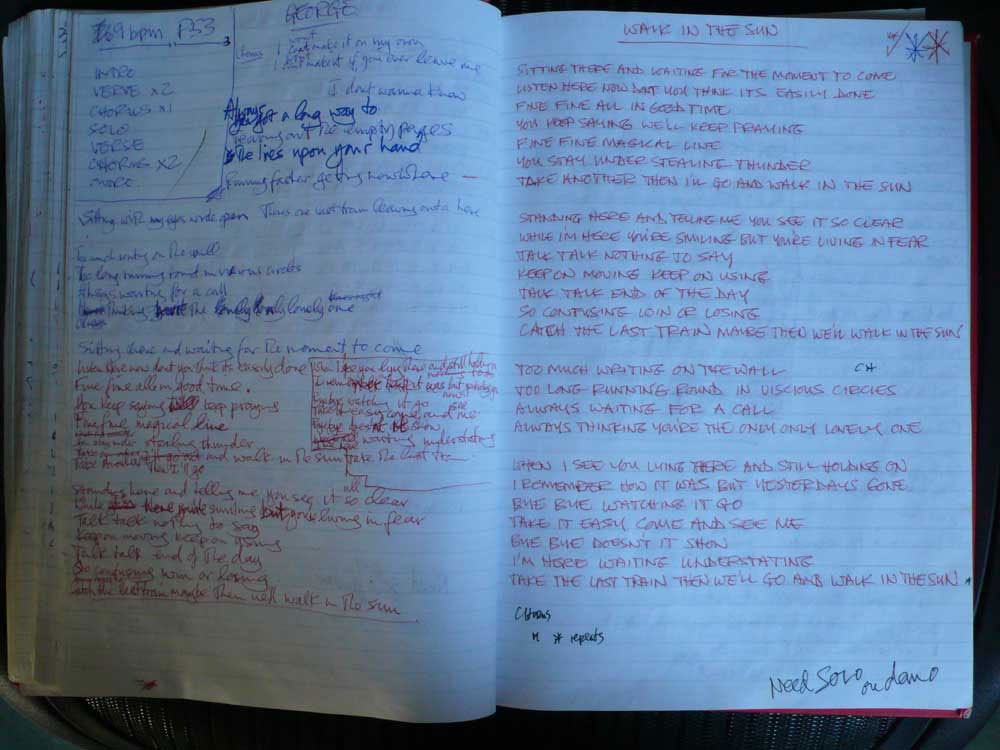 69 bpm P53
INTRO
VERVE x2
CHORUS x1
SOLO
VERSE
CHORUS x2
GEORGE
Chorus
I can't make it on my own
I can't make it if you ever leave me
I don't wanna know
Always got a long way to
leaving out the empty pages
The lies upon your hand
Running faster getting nowhere
Sitting with my eyes wide open Theres one last train leaving outa here
Too much writing on the wall
Too long running round in vicious circles
Always waiting for a call
the lonely lonely lonely one
Sitting here and waiting for the moment to come
Listen here now dont you think its easily done
Fine fine all in good time.
You keep saying keep praying
Fine fine magical line
stealing thunder
go out and walk in the sun take the last tra
Then I'll go
it was but
watching it go
Take it easy come and see me
bye bye doesnt show
waiting understating
Standing here and telling me you see it so clear
While here you're smiling but you're living in fear
Talk talk nothing to say
Keep on moving keep on using
Talk talk end of the day
So confusing win or losing
Catch the last train maybe then we'll walk in the sun
WALK IN THE SUN
SITTING THERE AND WAITING FOR THE MOMENT TO COME
LISTEN HERE NOW DON'T YOU THINK ITS EASILY DONE
FINE FINE ALL IN GOOD TIME
YOU KEEP SAYING WE'LL KEEP PRAYING
FINE FINE MAGICAL LINE
YOU STAY UNDER STEALING THUNDER
TAKE ANOTHER THEN I'LL GO AND WALK IN THE SUN
STANDING HERE AND TELLING ME YOU SEE IT SO CLEAR
WHILE I'M HERE YOU'RE SMILING BUT YOU'RE LIVING IN FEAR
TALK TALK NOTHING TO SAY
KEEP ON MOVING KEEP ON USING
TALK TALK END OF THE DAY
SO CONFUSING WIN OR LOSING
CATCH THE LAST TRAIN MAYBE THEN WE'LL WALK IN THE SUN
TOO MUCH WRITING ON THE WALL CH
TOO LONG RUNNING ROUND IN VISCIOUS CIRCLES
ALWAYS WAITING FOR A CALL
ALWAYS THINKING YOU'RE THE ONLY ONLY LONELY ONE
WHEN I SEE YOU LYING THERE AND STILL HOLDING ON
I REMEMBER HOW IT WAS BUT YESTERDAYS GONE
BYE BYE WATCHING IT GO
TAKE IT EASY COME AND SEE ME
BYE BYE DOESN'T IT SHOW
I'M HERE WAITING UNDERSTATING
TAKE THE LAST TRAIN THEN WE'LL GO AND WALK IN THE SUN
Chorus
" * repeats
NEED SOLO on demo